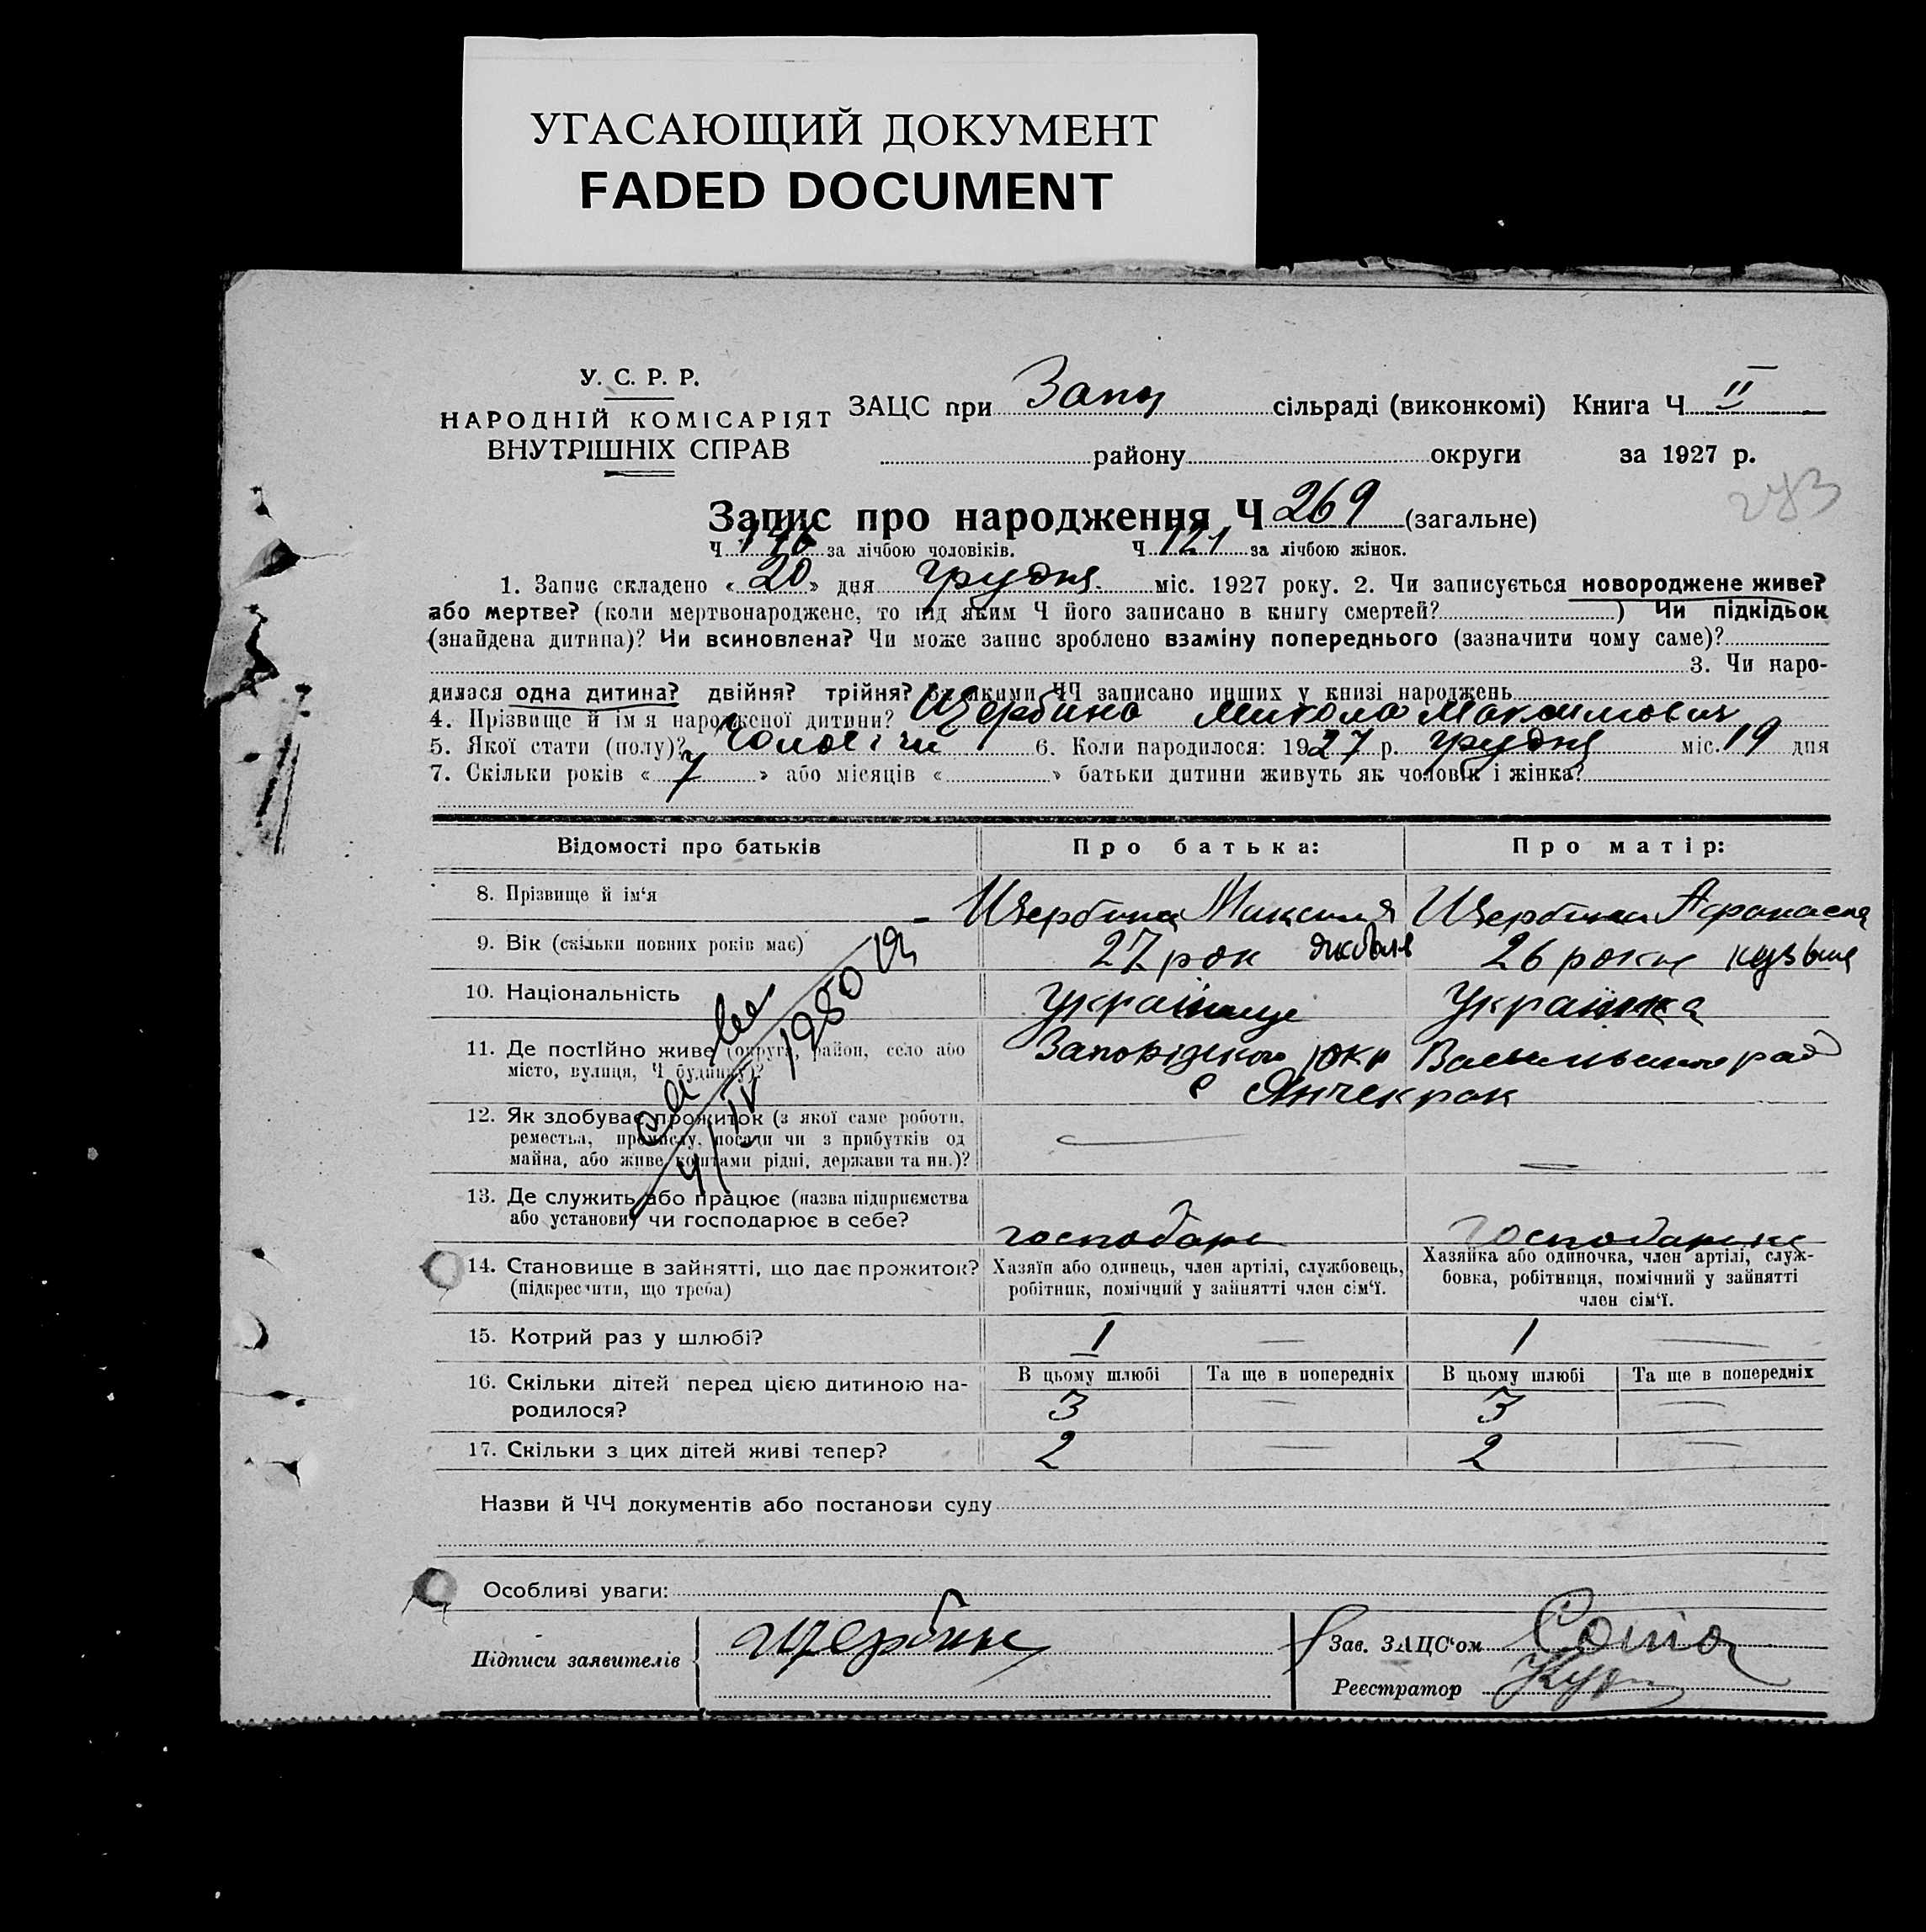 УГАСАЮЩИЙ ДОКУМЕНТ
FADED DOCUMENT
У. С. Р. Р.
НАРОДНІЙ КОМІСАРІЯТ
ВНУТРІШНІХ СПРАВ
ЗАЦС при сільраді (виконкомі) Книга Ч. II
району округи за 1927 р.
283
Запис про народження Ч 269 (загальне)
Ч за лічбою чоловіків. Ч 121 за лічбою жінок.
1. Запис складено «20» дня грудня міс. 1927 року. 2. Чи записується новороджене живе?
або мертве? (коли мертвонароджене, то під яким Ч його записано в книгу смертей? ) Чи підкідьок
(знайдена дитина)? Чи всиновлена? Чи може запис зроблено взаміну попереднього (зазначити чому саме)?
3. Чи наро-
дилася одна дитина? двійня? трійня? Під якими ЧЧ записано инших у книзі народжень
4. Прізвище й ім'я народженої дитини? Щербина Микола Максимович
5. Якої стати (полу)? чоловічи 6. Коли народилося: 1927 р. грудня міс. 19 дня
7. Скільки років «7» або місяців « » батьки дитини живуть як чоловік і жінка?
Відомості про батьків Про батька: Про матір:
8. Прізвище й ім'я Щербина Щербина
9. Вік (скільки повних років має) 27 рок 26 роки
10. Національність Українце Українка
11. Де постійно живе (округа, район, село або
місто, вулиця, Ч будинку)? Запорізького окр
с Янчекрак
12. Як здобуває прожиток (з якої саме роботи,
ремества, промислу, посади чи з прибутків од
майна, або живе коштами рідні, держави та ин.)?
13. Де служить або працює (назва підприємства
або установи) чи господарює в себе? господар
14. Становище в зайнятті, що дає прожиток?
(підкреслити, що треба)
Хазяїн або одинець, член артілі, службовець,
робітник, помічний у зайнятті член сім'ї.
Хазяйка або одиночка, член артілі, служ-
бовка, робітниця, помічний у зайнятті
член сім'ї.
15. Котрий раз у шлюбі? 1 — 1 —
16. Скільки дітей перед цією дитиною на-
родилося?
В цьому шлюбі Та ще в попередніх В цьому шлюбі Та ще в попередніх
3 — 3 —
17. Скільки з цих дітей живі тепер? 2 — 2 —
Назви й ЧЧ документів або постанови суду
Особливі уваги:
Підписи заявителів Щербина
Зав. ЗАЦС'ом
Реєстратор